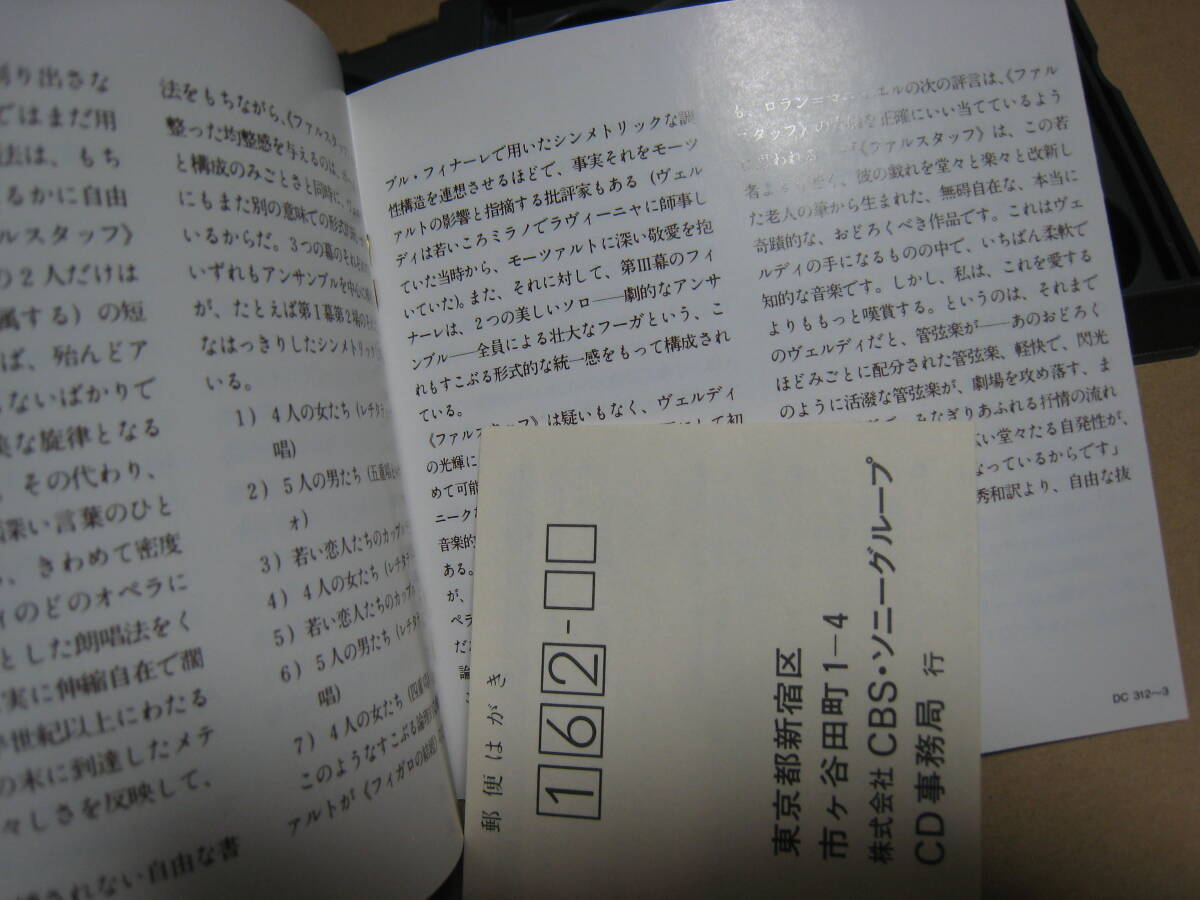 削り出さな
ではまだ用
法は、もち
るかに自由
ルスタッフ》
の2人だけは
属する）の短
ば、殆んどア
ないばかりで
集な旋律となる
、その代わり、
深い言葉のひと
、きわめて密度
ィのどのオペラに
とした朗唱法をく
実に伸縮自在で潤
世紀以上にわたる
の末に到達したメテ
々しさを反映して、
されない自由な書
法をもちながら、《ファルスタッフ
整った均整感を与えるのは、
と構成のみごとさと同時に、
にもまた別の意味での形式
いるからだ。3つの幕のそれぞれ
いずれもアンサンブルを中心に
が、たとえば第I幕第2場の
なはっきりしたシンメトリック
いる。
1）4人の女たち（レチタテ
唱）
2）5人の男たち（五重唱
ォ）
3）若い恋人たちのカップル
4）4人の女たち（レチタテ
5）若い恋人たちのカップル
6）5人の男たち（レチタテ
唱）
7）4人の女たち（四重唱
このようなすこぶる論理
アルトが《フィガロの結婚》
ブル・フィナーレで用いたシンメトリックな調
性構造を連想させるほどで、事実それをモーツ
ァルトの影響と指摘する批評家もある（ヴェル
ディは若いころミラノでラヴィーニャに師事し
ていた当時から、モーツァルトに深い敬愛を抱
いていた）。また、それに対して、第III幕のフィ
ナーレは、2つの美しいソロ——劇的なアンサ
ンブル——全員による壮大なフーガという、こ
れもすこぶる形式的な統一感をもって構成され
ている。
《ファルスタッフ》は疑いもなく、ヴェルディ
の光輝に
にして初
めて可能
ニーク
音楽的
ある。
が、
ペラ
だ
論
こ
も、ロラン＝マニュエルの次の評言は、《ファル
スタッフ》の を正確にいい当てているよう
に思われる 《ファルスタッフ》は、この若
者より 、彼の戯れを堂々と楽々と改新し
た老人の筆から生まれた、無碍自在な、本当に
奇蹟的な、おどろくべき作品です。これはヴェ
ルディの手になるものの中で、いちばん柔軟で
知的な音楽です。しかし、私は、これを愛する
よりももっと嘆賞する。というのは、それまで
のヴェルディだと、管弦楽が——あのおどろく
ほどみごとに配分された管弦楽、軽快で、閃光
のように活潑な管弦楽が、劇場を攻め落す、ま
みなぎりあふれる抒情の流れ
い堂々たる自発性が、
なっているからです」
秀和訳より、自由な抜
DC 312〜3
郵便はがき
162-
東京都新宿区
市ヶ谷田町1-4
株式会社 CBS・ソニーグループ
CD事務局 行